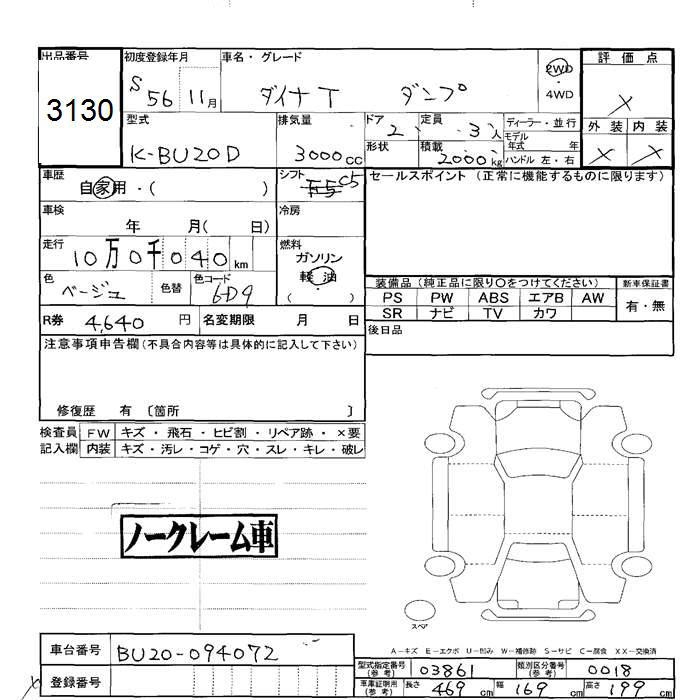 出品番号 初度登録年月 車名・グレード 2WD 評価点
3130 S 56 11月 ダイナT ダンプ 4WD X
型式 排気量 ドア 定員 ディーラー・並行 外装 内装
K-BU20D 3000cc 2 3人 モデル年式 年 X X
形状 積載 2000kg ハンドル 左・右
車歴 シフト セールスポイント (正常に機能するものに限ります)
自家用・( ) C5
車検 冷房
年 月( 日)
走行 燃料
10万0千040km ガソリン
色 色替 色コード 軽油
ベージュ 6D9 ( )
装備品 (純正品に限り○をつけてください) 新車保証書
PS PW ABS エアB AW 有・無
SR ナビ TV カワ
R券 4,640円 名変期限 月 日
後日品
注意事項申告欄(不具合内容等は具体的に記入して下さい)
修復歴 有 〔箇所 〕
検査員 FW キズ・飛石・ヒビ割・リペア跡・×要
記入欄 内装 キズ・汚レ・コゲ・穴・スレ・キレ・破レ
ノークレーム車
スペア
A−キズ E−エクボ U−凹み W−補修跡 S−サビ C−腐食 XX−交換済
車台番号 BU20-094072
登録番号
型式指定番号(参考) 03861 類別区分番号(参考) 0018
車庫証明用(参考) 長さ 469cm 幅 169cm 高さ 199cm